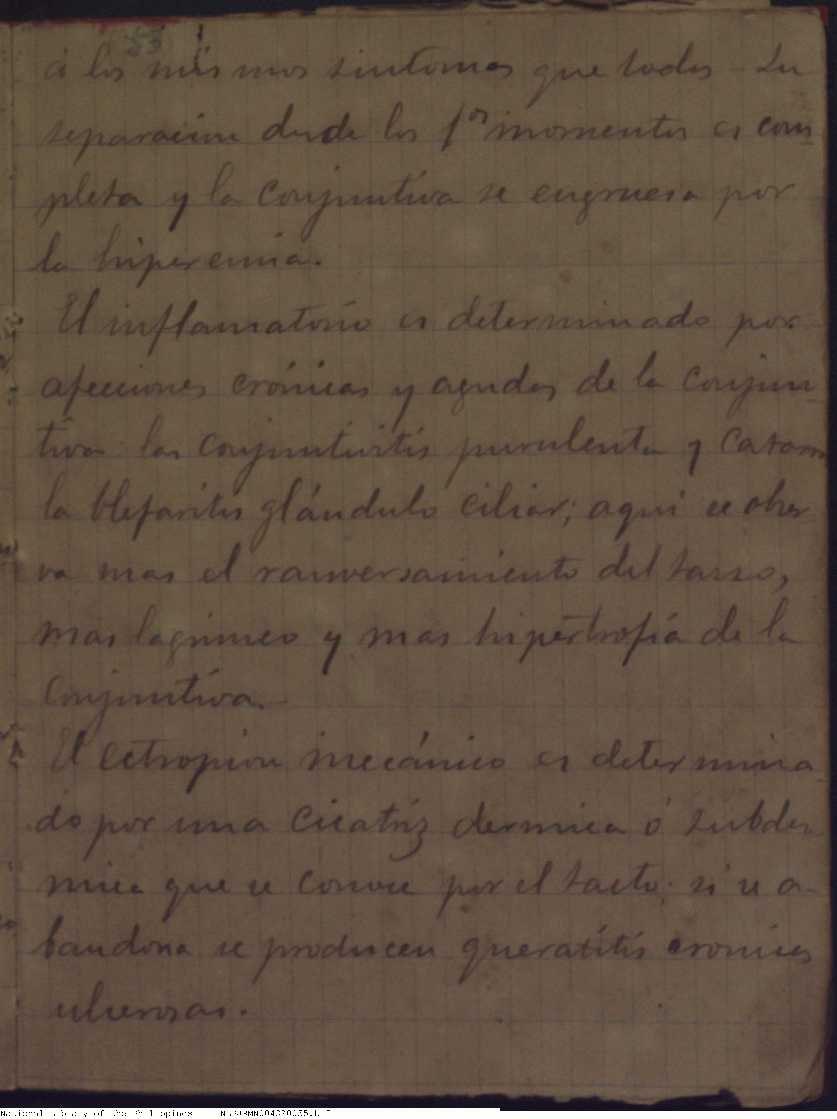 53
á los mismos sintomas que todos Su
separacion desde los 1os momentos es com
pleta y la conjuntiva se engruesa por
la hiperemia.
El inflamatorio es determinado por
afecciones crónicas y agudas de la conjun
tiva las conjuntivitis purulenta y catarra
la blefaritis glándulo ciliar; aqui se obser
va mas el ranversamiento del tarso,
mas lagrimeo y mas hipertrofía de la
conjuntiva.
El ectropion mecánico es determina
do por una cicatriz dermica ó subder
mica que se conoce por el tacto; si se a-
bandona se producen queratitis cronicas
ulcerosas.
National Library of the Philippines